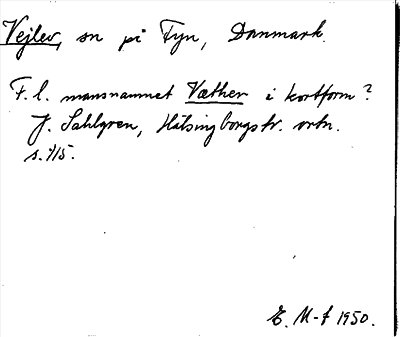 Vejlev, sn på Fyn, Danmark.
F. l. mansnamnet Væther i kortform?
J. Sahlgren, Hälsingborgstr. ortn.
s. 115.
E. M-f 1950.